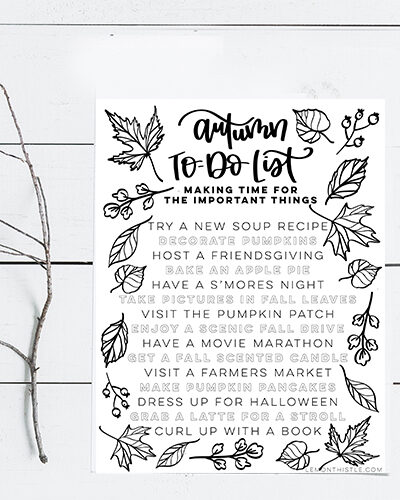 autumn
TO-DO LIST
MAKING TIME FOR
THE IMPORTANT THINGS
TRY A NEW SOUP RECIPE
DECORATE PUMPKINS
HOST A FRIENDSGIVING
BAKE AN APPLE PIE
HAVE A S'MORES NIGHT
TAKE PICTURES IN FALL LEAVES
VISIT THE PUMPKIN PATCH
ENJOY A SCENIC FALL DRIVE
HAVE A MOVIE MARATHON
GET A FALL SCENTED CANDLE
VISIT A FARMERS MARKET
MAKE PUMPKIN PANCAKES
DRESS UP FOR HALLOWEEN
GRAB A LATTE FOR A STROLL
CURL UP WITH A BOOK
LEMONTHISTLE.COM